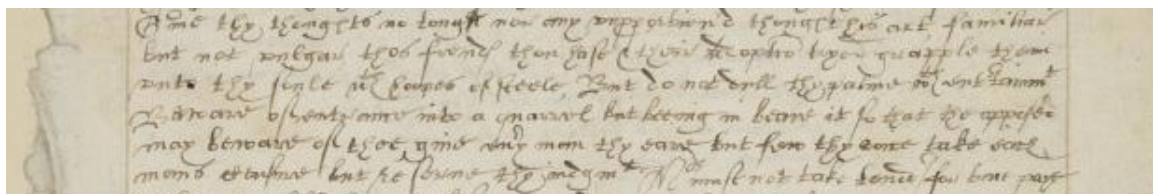 Giue thy thoughts no tongue nor any vnproportiond thought his act, familiar
but not vulgar thos frends thou hast & their adoption tryed grapple them
vnto thy soule wth hoopes of steele, But do not dull thy palme wth entertainmt
Beware of entrance into a quarrel but beeing in beare it so that the opposed
may beware of thee, giue euery man thy eare but few thy voice take each
mans censure but reserue thy iudgmt
must not take for